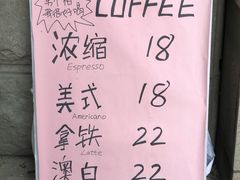 COFFEE
浓缩 18
Espresso
美式 18
Americano
拿铁 22
Latte
澳白 22